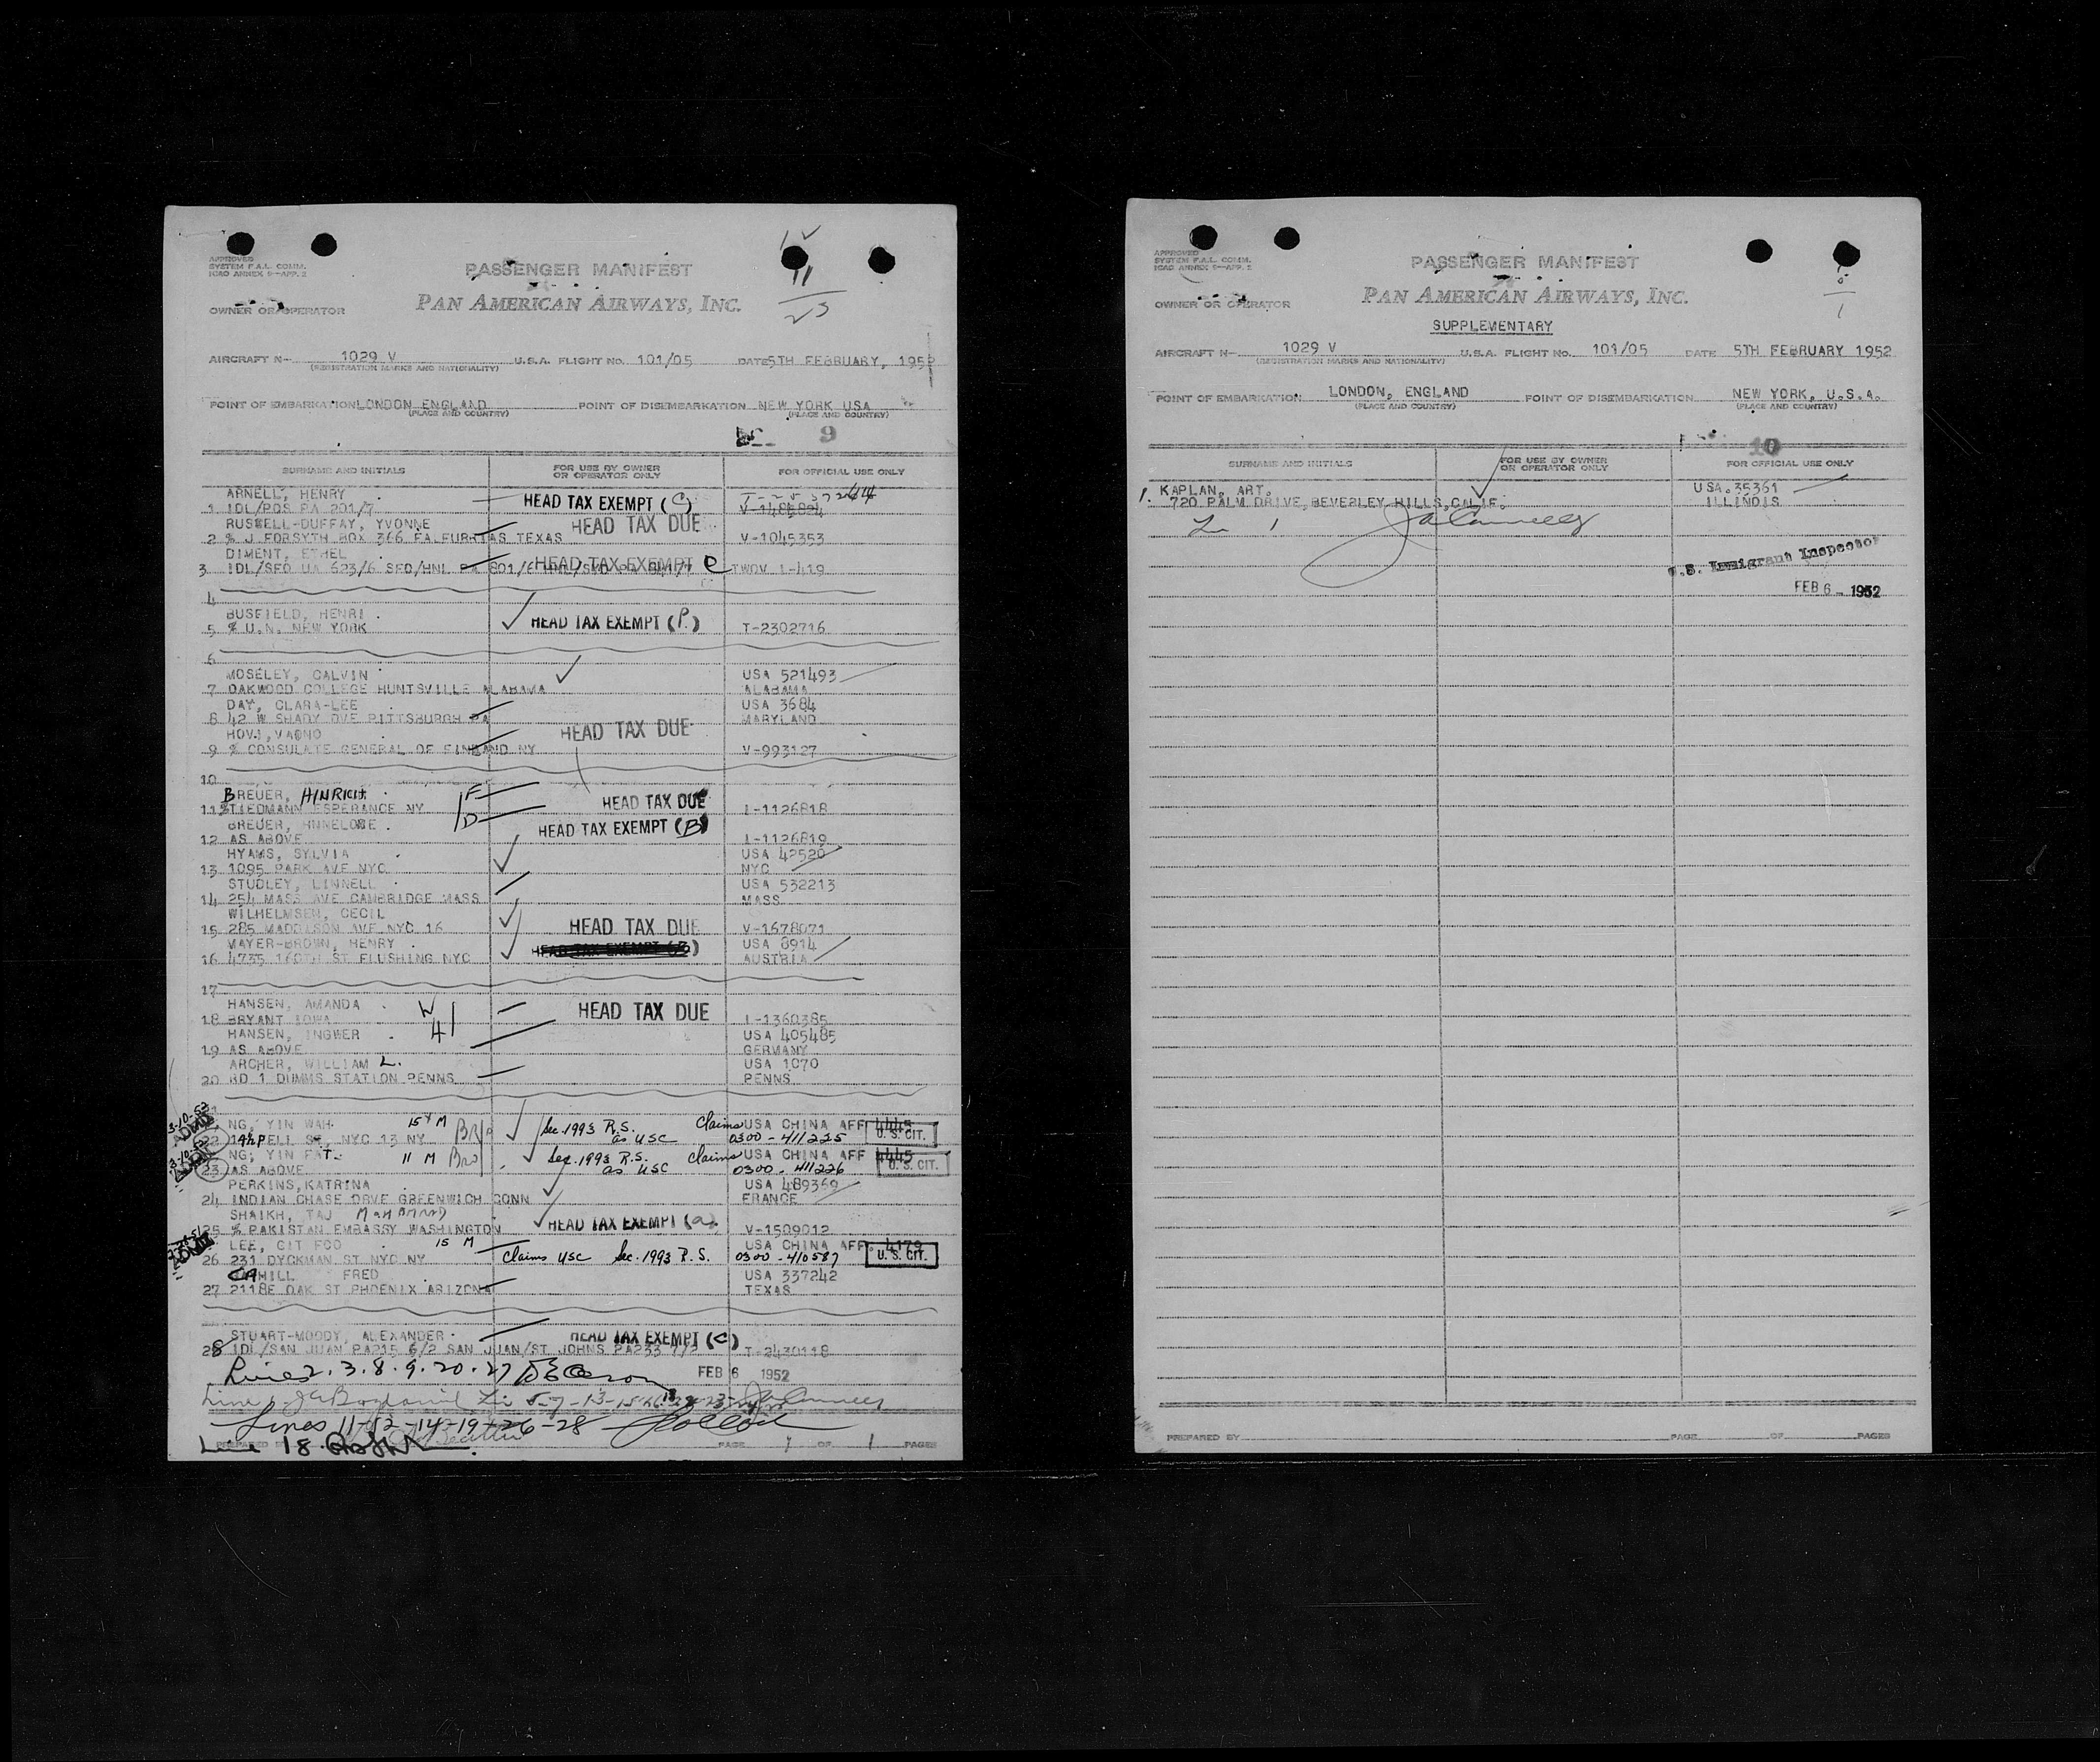 APPROVED
SYSTEM F.A.L. COMM.
ICAO ANNEX 9-APP. 2
PASSENGER MANIFEST
11
OWNER OR OPERATOR
PAN AMERICAN AIRWAYS, INC.
AIRCRAFT N- 1029 V U.S.A. FLIGHT NO. 101/05 DATE 5TH FEBRUARY, 1952
(REGISTRATION MARKS AND NATIONALITY)
POINT OF EMBARKATION LONDON ENGLAND POINT OF DISEMBARKATION NEW YORK USA
(PLACE AND COUNTRY) (PLACE AND COUNTRY)
9
SURNAME AND INITIALS FOR USE BY OWNER OR OPERATOR ONLY FOR OFFICIAL USE ONLY
ARNELL, HENRY HEAD TAX EXEMPT (C)
1 IDL/POS PA 201/7
RUSSELL-DUFFAY, YVONNE HEAD TAX DUE
2 % J FORSYTH BOX 366 FALFURRIAS TEXAS V-1045353
DIMENT, ETHEL
3 IDL/SFO UA 623/6 SFO/HNL PA 801/6 HEAD TAX EXEMPT C TWOV 1-419
4
BUSFIELD, HENRI
5 % U.N. NEW YORK HEAD TAX EXEMPT (P.) T-2302716
6
MOSELEY, CALVIN USA 521493
7 OAKWOOD COLLEGE HUNTSVILLE ALABAMA ALABAMA
DAY, CLARA-LEE USA 3684
8 42 W SHADY DVE PITTSBURGH PA MARYLAND
HOVI, VAONO HEAD TAX DUE
9 % CONSULATE GENERAL OF FINLAND NY V-993127
10
BREUER, HINRICH F HEAD TAX DUE
11 % TIEDMANN ESPERANCE NY I-1126818
BREUER, HNNELORE D HEAD TAX EXEMPT (B)
12 AS ABOVE I-1126819
HYAMS, SYLVIA USA 42520
13 1095 PARK AVE NYC NYC
STUDLEY, LINNELL USA 532213
14 254 MASS AVE CAMBRIDGE MASS MASS
WILHELMSEN, CECIL HEAD TAX DUE
15 285 MADDISON AVE NYC 16 V-1678071
MAYER-BROWN, HENRY HEAD TAX EXEMPT USA 8914
16 4735 160TH ST FLUSHING NYC AUSTRIA
17
HANSEN, AMANDA W HEAD TAX DUE
18 BRYANT IOWA I-1360385
HANSEN, INGWER H USA 405485
19 AS ABOVE GERMANY
ARCHER, WILLIAM L. USA 1070
20 RD 1 DUMMS STATION PENNS PENNS
3-10-52
NG, YIN WAH 15 M Bro Sec. 1993 R.S. as USC Claims USA CHINA AFF 4445
22 PELL ST, NYC 13 NY 0300-411225 U.S. CIT.
NG, YIN FAT. 11 M Bro Sec. 1993 R.S. as USC Claims USA CHINA AFF 4445
23 AS ABOVE 0300-411226 U.S. CIT.
PERKINS, KATRINA USA 489369
24 INDIAN CHASE DRVE GREENWICH CONN FRANCE
SHAIKH, TAJ MAHMMD
25 % PAKISTAN EMBASSY WASHINGTON HEAD TAX EXEMPT (a) V-1509012
LEE, GIT FOO 15 M USA CHINA AFF. 4179
26 231 DYCKMAN ST NYC NY Claims USC Sec. 1993 R.S. 0300-410587 U.S. CIT.
CAHILL FRED USA 337242
27 2118E OAK ST PHOENIX ARIZONA TEXAS
STUART-MOODY, ALEXANDER HEAD TAX EXEMPT (C)
28 IDL/SAN JUAN PA215 6/2 SAN JUAN/ST JOHNS PA233 7/2 T-2430118
Lines 2.3.8.9.20.27 FEB 6 1952
Lines 11-12-14-19-26-28
Line 18.
PREPARED BY PAGE 1 OF 1 PAGES
APPROVED
SYSTEM F.A.L. COMM.
ICAO ANNEX 9-APP. 2
PASSENGER MANIFEST
OWNER OR OPERATOR
PAN AMERICAN AIRWAYS, INC.
SUPPLEMENTARY
AIRCRAFT N- 1029 V U.S.A. FLIGHT NO. 101/05 DATE 5TH FEBRUARY 1952
(REGISTRATION MARKS AND NATIONALITY)
POINT OF EMBARKATION LONDON, ENGLAND POINT OF DISEMBARKATION NEW YORK, U.S.A.
(PLACE AND COUNTRY) (PLACE AND COUNTRY)
10
SURNAME AND INITIALS FOR USE BY OWNER OR OPERATOR ONLY FOR OFFICIAL USE ONLY
1. KAPLAN, ART. USA.35361
720 PALM DRIVE, BEVERLEY HILLS, CALIF. ILLINOIS
Li 1
U.S. Immigrant Inspector
FEB 6 - 1952
PREPARED BY PAGE OF PAGES